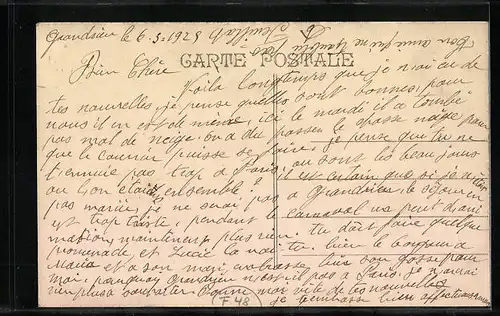 Grandrieu le 6.3.1929
CARTE POSTALE
Bien Chère
Voila longtemps que je n'ai eu de
tes nouvelles, je pense qu'elles sont bonnes, pour
nous il en est de même, ici le mardi il a tombé
pas mal de neige. on a du passer le chasse neige pour
que le courrier puisse se faire, je pense que tu ne
t'ennuie pas trop a Paris, ou sont les beaux jours
ou l'on étais ensemble? il est certain que si je n'étais
pas mariée, je ne suis pas a Grandrieu, le séjour en
est trop triste, pendant le carnaval un peut d'ani
mation, maintenant plus rien. tu dois faire quelque
promenade, et Lucie la voi-tu. bien le bonjour a
Maria et a son mari, embrasse bien son gosse pour
moi. pourquoi Grandrieu n'est il pas a Paris. Je n'aurai
rien plus a souhaiter. Donne moi vite de tes nouvelles
je t'embrasse bien affectueusement
F 48